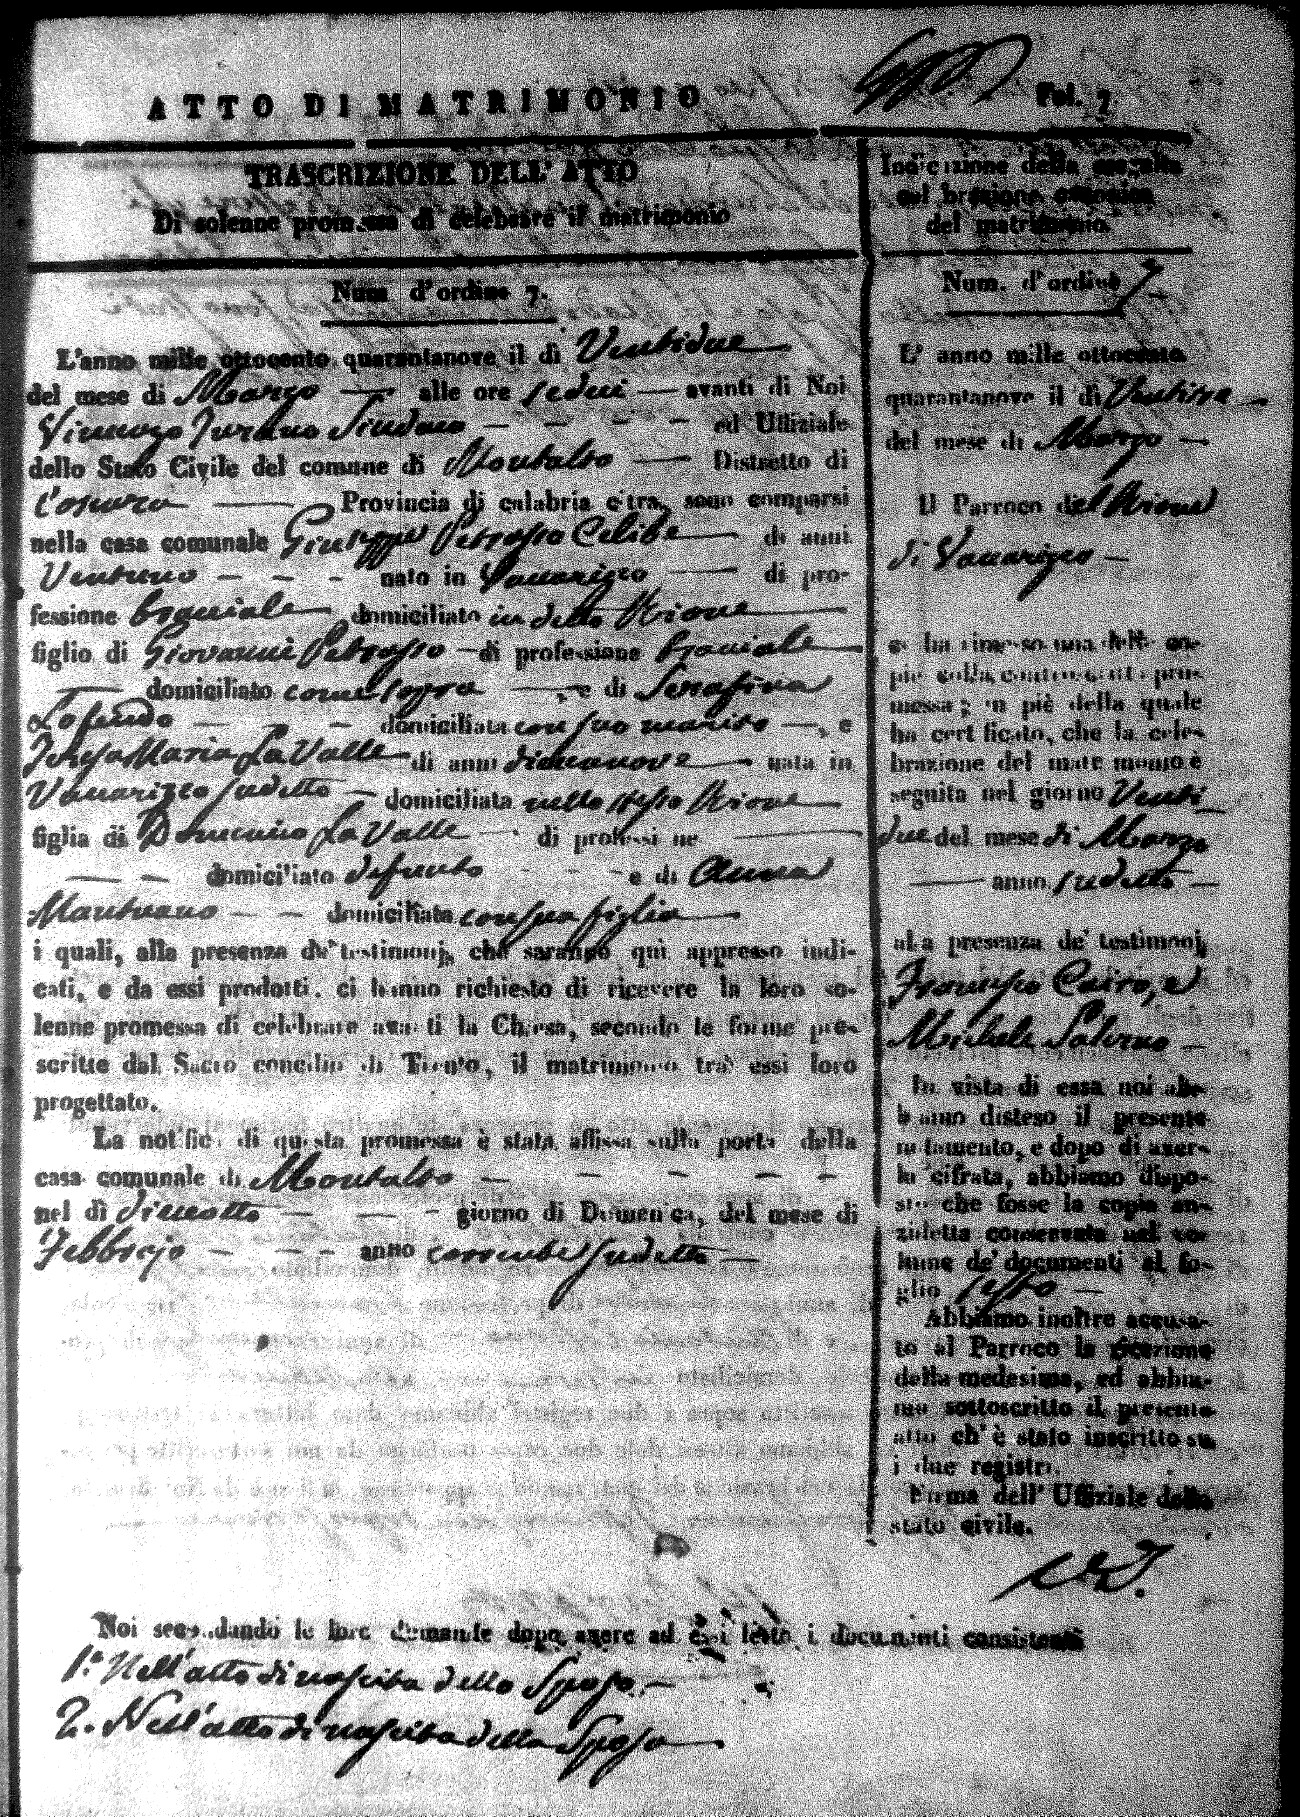 ATTO DI MATRIMONIO
Fol. 7
TRASCRIZIONE DELL' ATTO
Di solenne promessa di celebrare il matrimonio
Num d'ordine 7.
L'anno mille ottocento quarantanove il dì Ventidue
del mese di Marzo alle ore sedici avanti di Noi
Vincenzo Turano Sindaco ed Uffiziale
dello Stato Civile del comune di Montalto Distretto di
Cosenza Provincia di calabria citra, sono comparsi
nella casa comunale Giuseppe Petrasso Celibe di anni
Ventuno nato in Vaccarizzo di pro-
fessione braciale domiciliato in detto Rione
figlio di Giovanni Petrasso di professione braciale
domiciliato come sopra, e di Serafina
Lofeudo domiciliata con suo marito, e
Teresa Maria La Valle di anni diecianove nata in
Vaccarizzo sudetto domiciliata nello stesso Rione
figlia di Domenico La Valle di professi ne
domiciliato defunto e di Anna
Mantuano domiciliata con sua figlia
i quali, alla presenza de' testimonj, che saranno qui appresso indi-
cati, e da essi prodotti, ci hanno richiesto di ricevere la loro so-
lenne promessa di celebrare avanti la Chiesa, secondo le forme pre-
scritte dal Sacro concilio di Trento, il matrimonio tra essi loro
progettato.
La notific di questa promessa è stata affissa sulla porta della
casa comunale di Montalto
nel dì diciotto giorno di Domenica, del mese di
Febbrajo anno corrente sudetto
Indicizione della seguita
cel brazione canonica
del matrimonio.
Num. d'ordine 7
L' anno mille ottocento
quarantanove il dì Ventitre
del mese di Marzo
Il Parroco del Rione
di Vaccarizzo
ci ha rimesso una delle co-
pie della controscritta pro-
messa; in piè della quale
ha cert ficato, che la cele-
brazione del matrimonio è
seguita nel giorno Venti
due del mese di Marzo
anno sudetto
alla presenza de' testimonj
Francesco Cairo, e
Michele Salerno
In vista di essa noi ab-
biamo disteso il presente
notamento, e dopo di aver-
la cifrata, abbiamo dispo-
sto che fosse la copia an-
zidetta conservata nel vo-
lume de' documenti al fo-
glio sesto
Abbiamo inoltre accusa-
to al Parroco la ricezione
della medesima, ed abbia-
mo sottoscritto il presente
atto ch' è stato inscritto su
i due registri.
Firma dell' Uffiziale dello
stato civile.
Noi secondando le loro demande dopo avere ad essi letto i documenti consistenti
1.° Nell'atto di nascita dello Sposo.
2. Nell'atto di nascita della Sposa